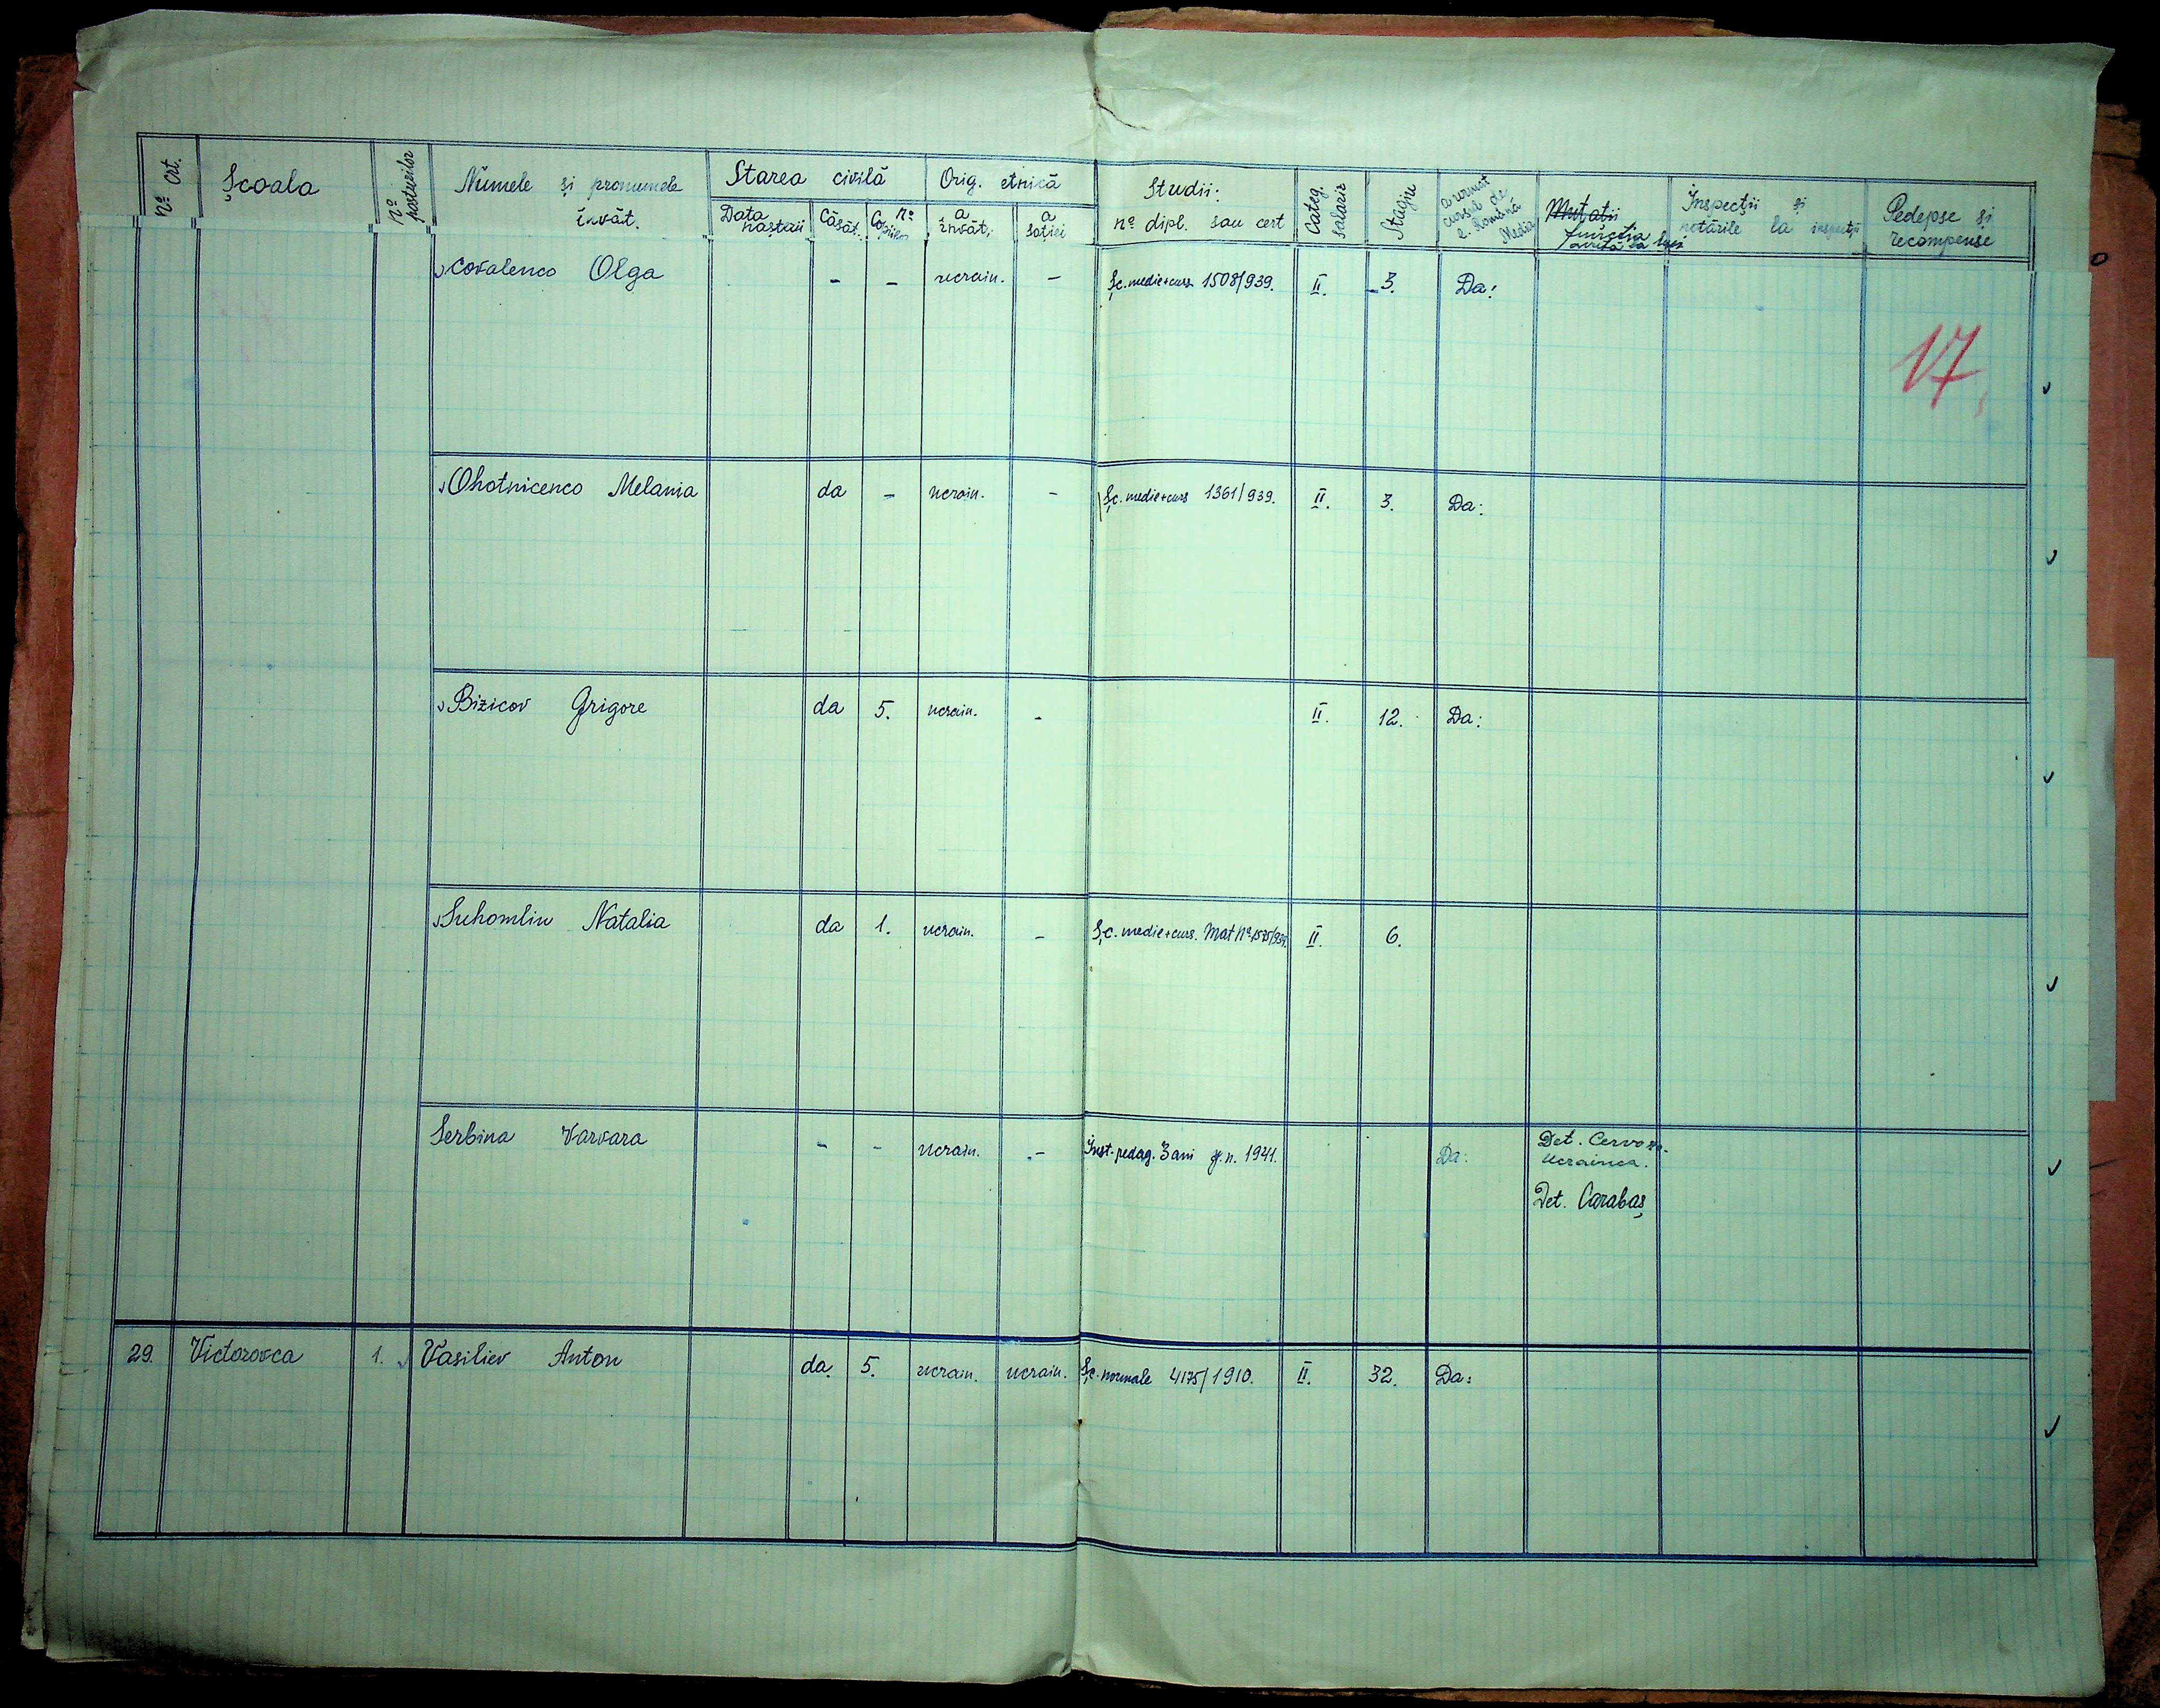 Nº Crt.
Școala
Nº posturilor
Numele și pronumele învăt.
Starea civilă
Data nașterii
Căsăt.
Nº Copiilor
Orig. etnică
a învăt.
a soției
Studii:
nº dipl. sau cert
Categ. salariz
Stagiu
a urmat cursul de l. Română Media
Mutații
funcția
Inspecții și notările la inspecții
Pedepse și recompense
Covalenco Olga - - ucrain. - Șc. medie+curs 1508/939. II. 3. Da:
17
Ohotnicenco Melania da - ucrain. - Șc. medie+curs 1361/939. II. 3. Da:
Bizicov Grigore da 5. ucrain. - II. 12. Da:
Suhomlin Natalia da 1. ucrain. - Șc. medie+curs. Mat Nº 1575/939. II. 6.
Serbina Varvara - - ucrain. - Inst. pedag. 3 ani f. n. 1941. Da: Det. Cervono-
Ucrainca.
Det. Carabaș
29. Victorovca 1. Vasiliev Anton da. 5. ucrain. ucrain. Șc. normale 4175/1910. II. 32. Da: